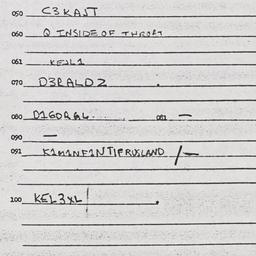 050 C3KAJT
060 Q INSIDE OF THROAT
061 KEJL1
070 D3RALDZ .
080 D1GORAL 081 —
090 —
091 K1M1NF1NTIFRUSLAND /—
100 KEL3XL .